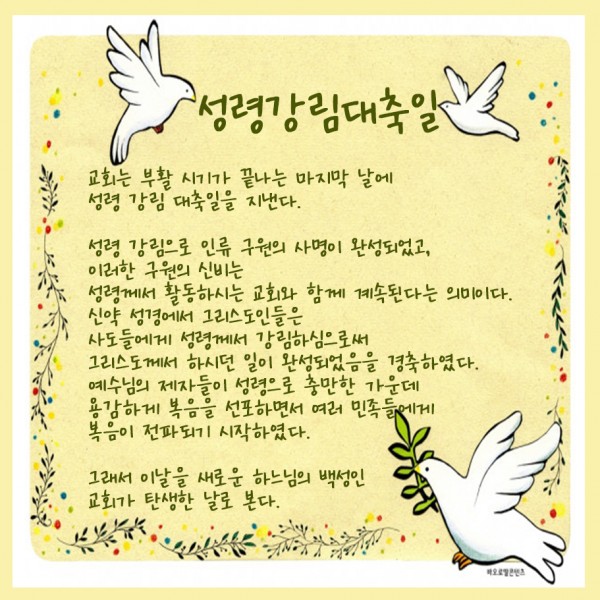 성령강림대축일
교회는 부활 시기가 끝나는 마지막 날에
성령 강림 대축일을 지낸다.
성령 강림으로 인류 구원의 사명이 완성되었고,
이러한 구원의 신비는
성령께서 활동하시는 교회와 함께 계속된다는 의미이다.
신약 성경에서 그리스도인들은
사도들에게 성령께서 강림하심으로써
그리스도께서 하시던 일이 완성되었음을 경축하였다.
예수님의 제자들이 성령으로 충만한 가운데
용감하게 복음을 선포하면서 여러 민족들에게
복음이 전파되기 시작하였다.
그래서 이날을 새로운 하느님의 백성인
교회가 탄생한 날로 본다.
바오로딸콘텐츠